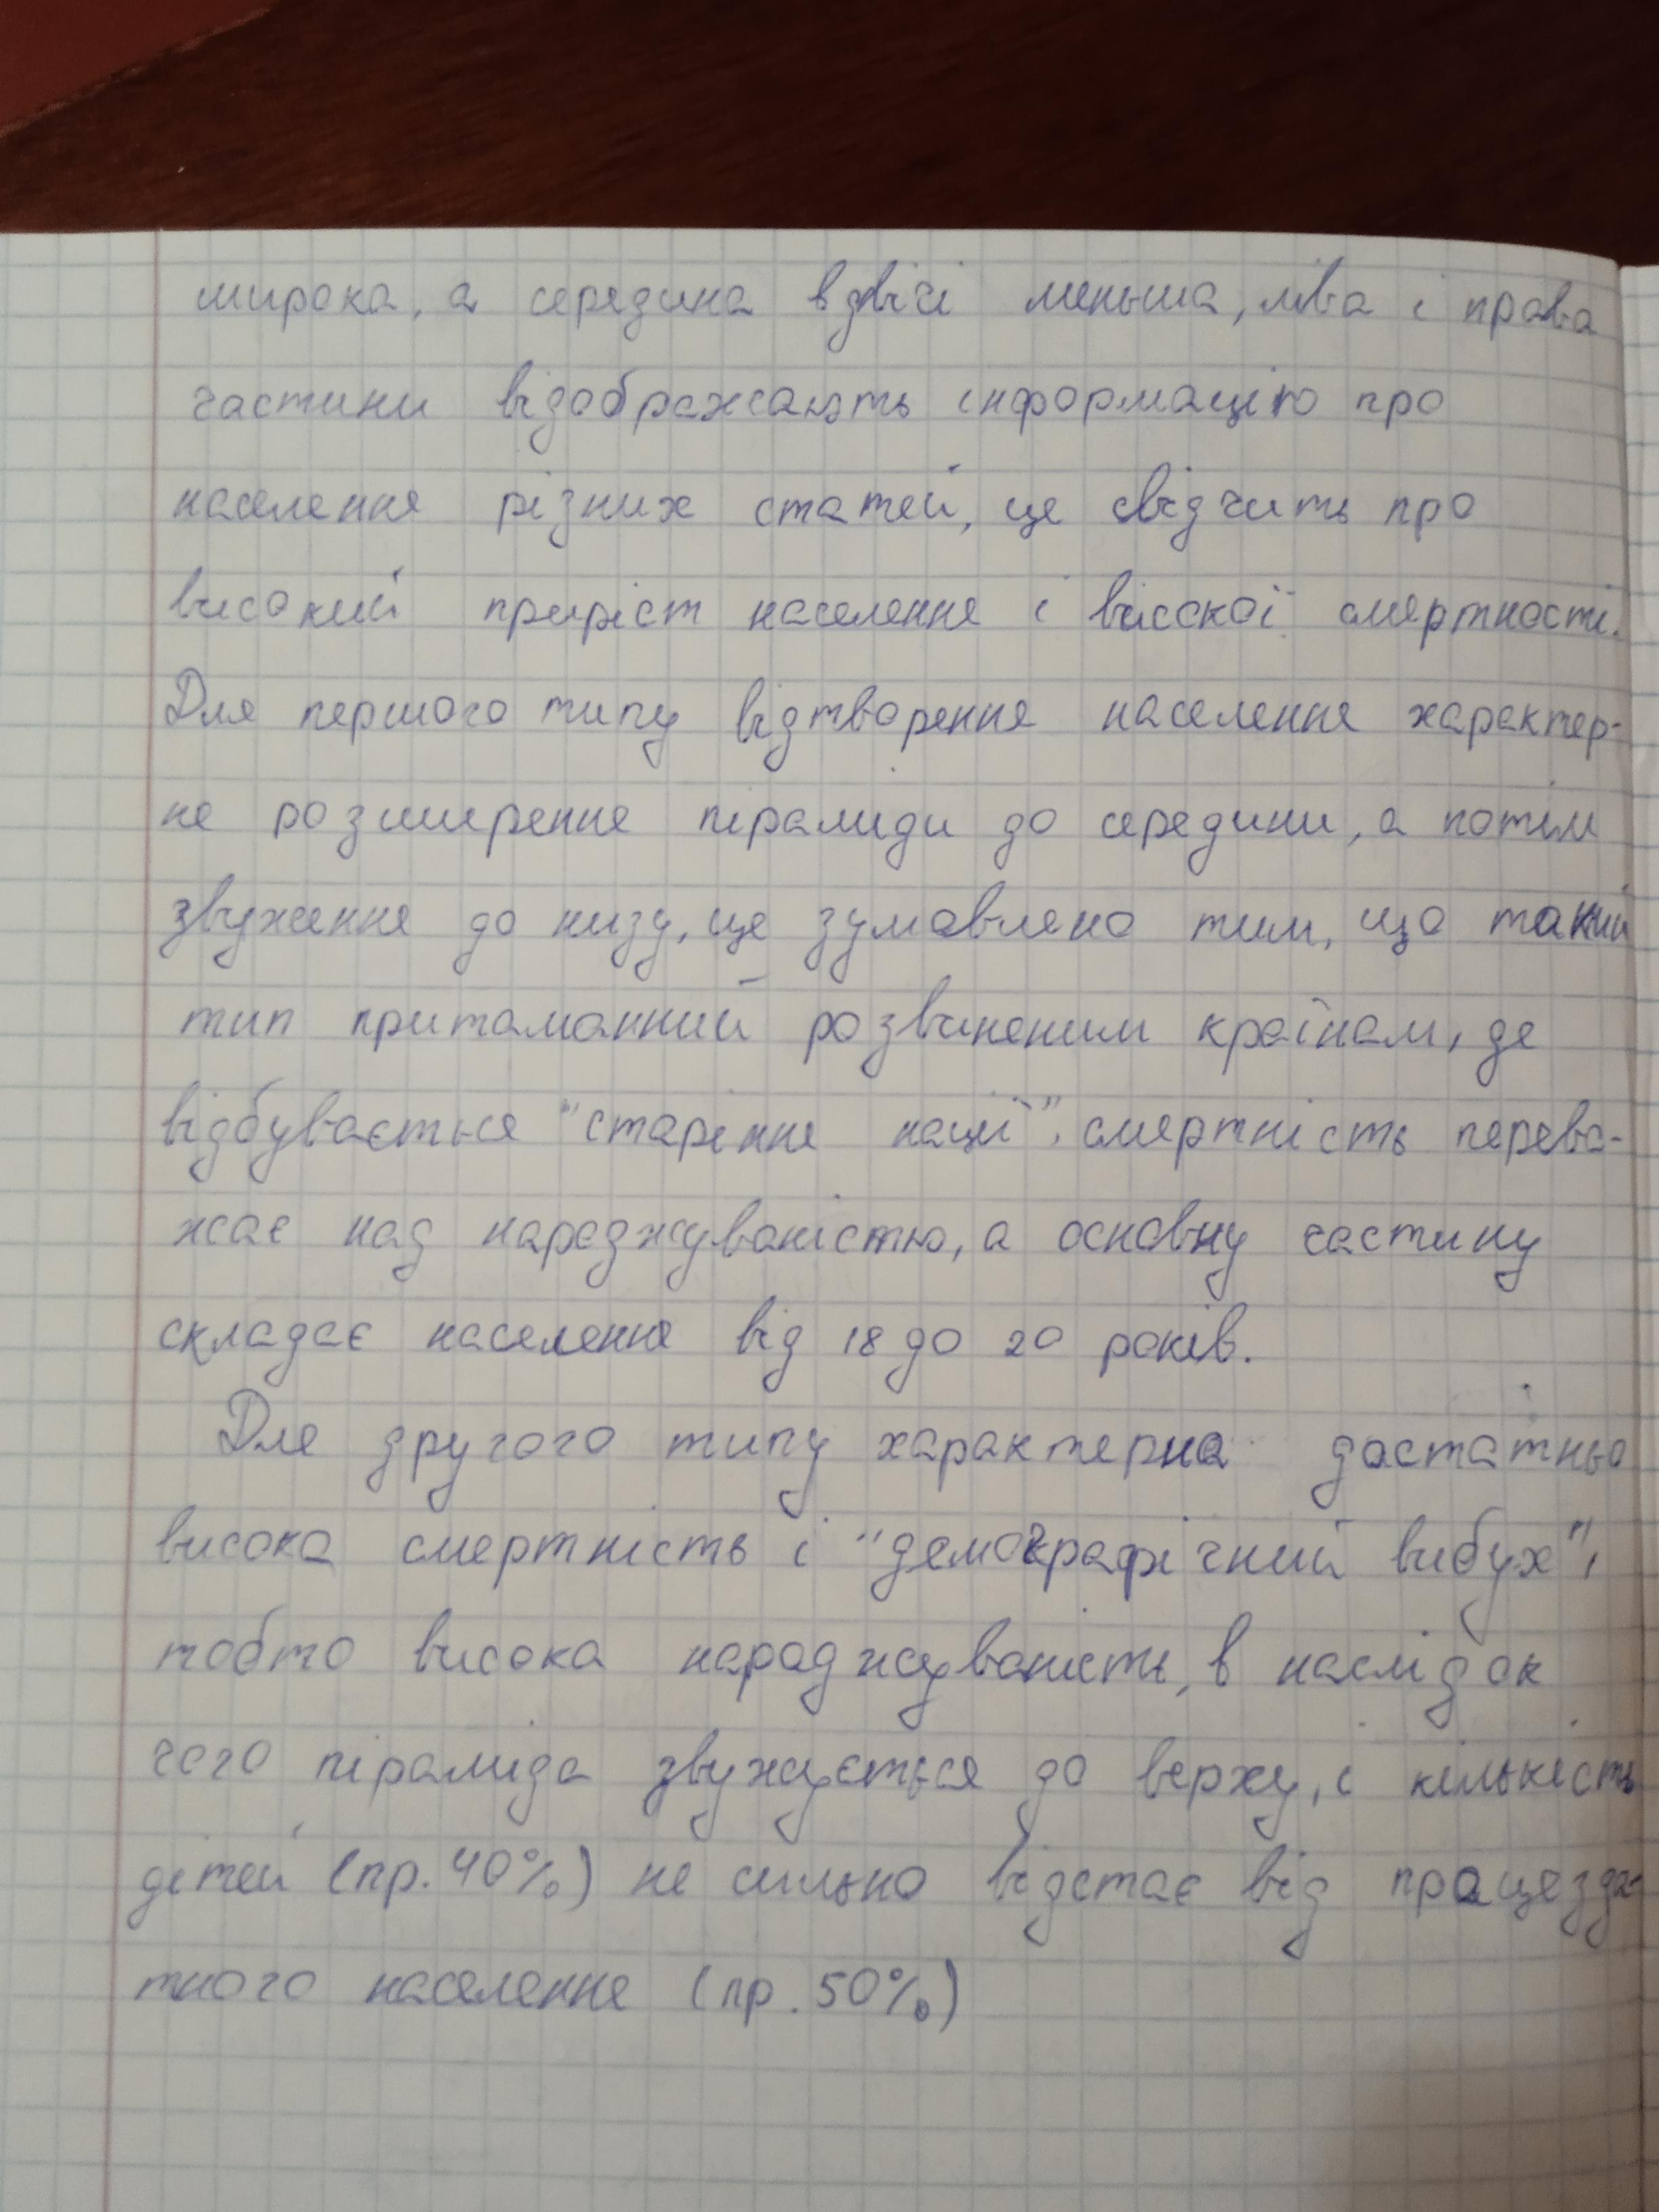 широка, а середина вдвічі меньша, ліва і права
частини відображають інформацію про
населення різних статей, це свідчить про
високий приріст населення і високої смертності.
Для першого типу відтворення населення характер-
не розширення піраміди до середини, а потім
звуження до низу, це зумовлено тим, що такий
тип притаманний розвиненим країнам, де
відбувається "старіння нації", смертність перева-
жає над народжуваністю, а основну частину
складає населення від 18 до 20 років.
Для другого типу характерна достатньо
висока смертність і "демографічний вибух",
тобто висока народжуваність, в наслідок
чого піраміда звужується до верху, і кількість
дітей (пр. 40%) не сильно відстає від працезда-
тного населення (пр. 50%)